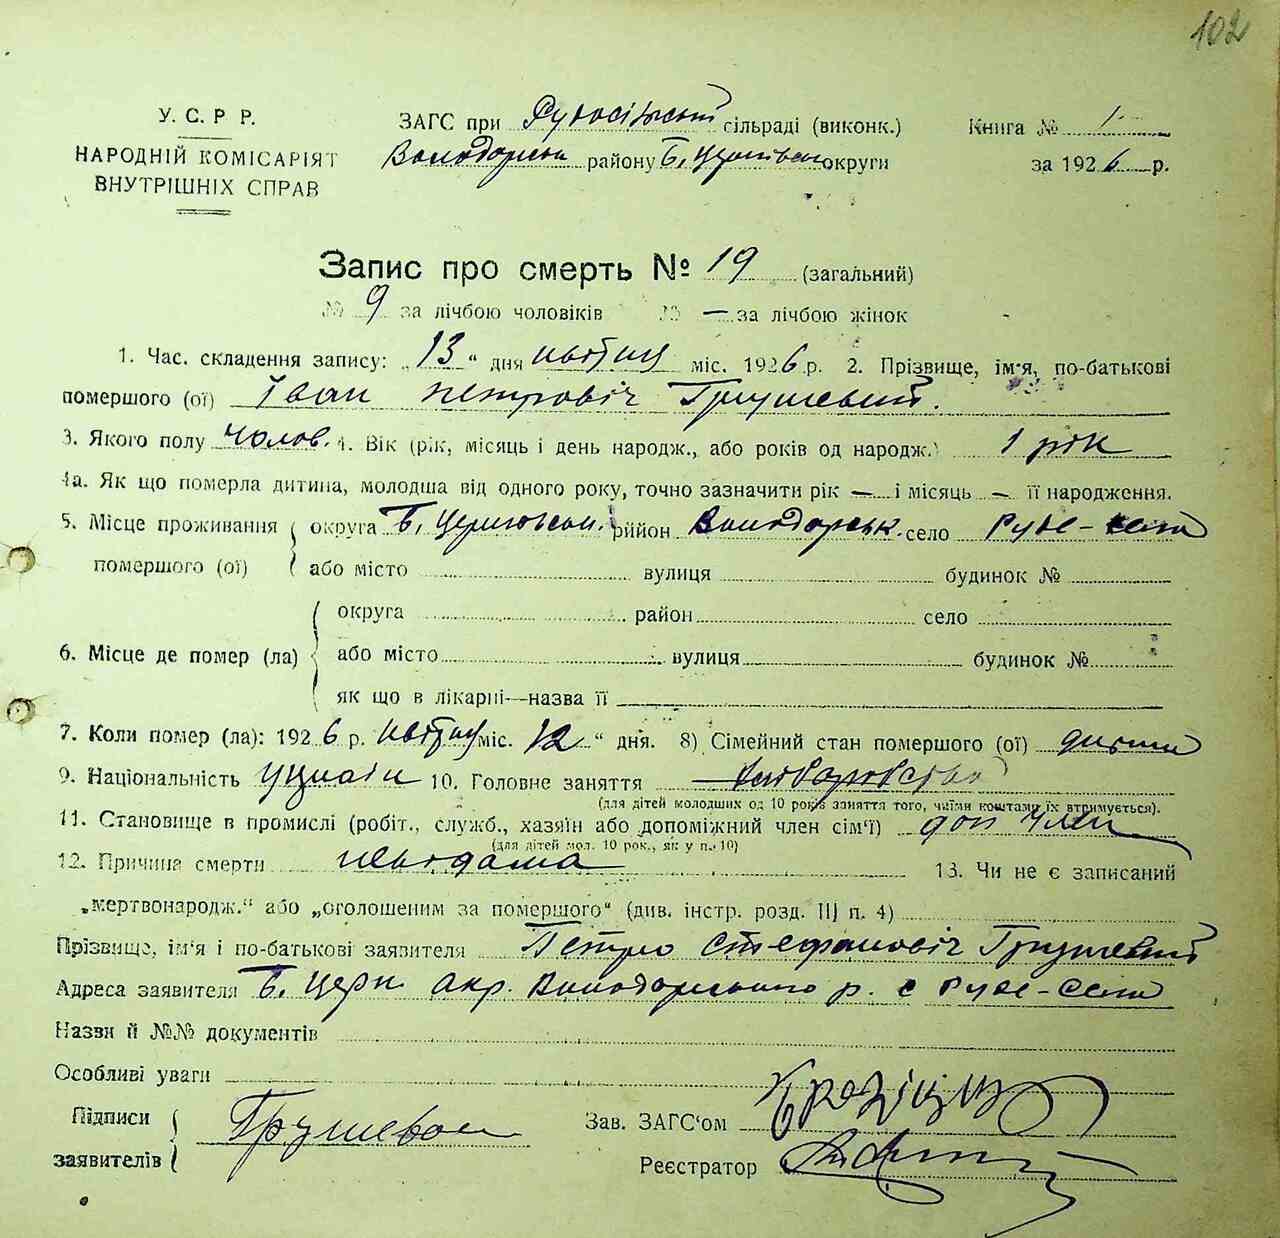 102
У. С. Р. Р.
НАРОДНІЙ КОМІСАРІЯТ
ВНУТРІШНІХ СПРАВ
ЗАГС при Рудосільській сільраді (виконк.)
Володарськ району Б. Церківськ округи
Книга № 1
за 1926 р.
Запис про смерть № 19 (загальний)
№ 9 за лічбою чоловіків № — за лічбою жінок
1. Час. складення запису: „13“ дня квітня міс. 1926 р. 2. Прізвище, ім'я, по-батькові
помершого (ої) Іван Петровіч Грушевий.
3. Якого полу чолов. 4. Вік (рік, місяць і день народж., або років од народж.) 1 рік
4а. Як що померла дитина, молодша від одного року, точно зазначити рік — і місяць — її народження.
5. Місце проживання помершого (ої) округа Б. Церковськ. район Володорськ. село Руде-село
або місто вулиця будинок №
6. Місце де помер (ла) округа район село
або місто вулиця будинок №
як що в лікарні—назва її
7. Коли помер (ла): 1926 р. квітня міс. 12“ дня. 8) Сімейний стан помершого (ої) дитина
9. Національність украін 10. Головне заняття хліборобство
(для дітей молодших од 10 років заняття того, чиїми коштами їх втримується).
11. Становище в промислі (робіт., служб., хазяїн або допоміжний член сім'ї) доп член
(для дітей мол. 10 рок., як у п. 10)
12. Причина смерти невідома 13. Чи не є записаний
„мертвонародж.“ або „оголошеним за помершого“ (див. інстр. розд. III п. 4)
Прізвище, ім'я і по-батькові заявителя Петро Стефановіч Грушевий
Адреса заявителя Б. Церк. окр. Володорського р. с Руде-Село
Назви й №№ документів
Особливі уваги
Підписи заявителів Грушевой
Зав. ЗАГС'ом
Реєстратор